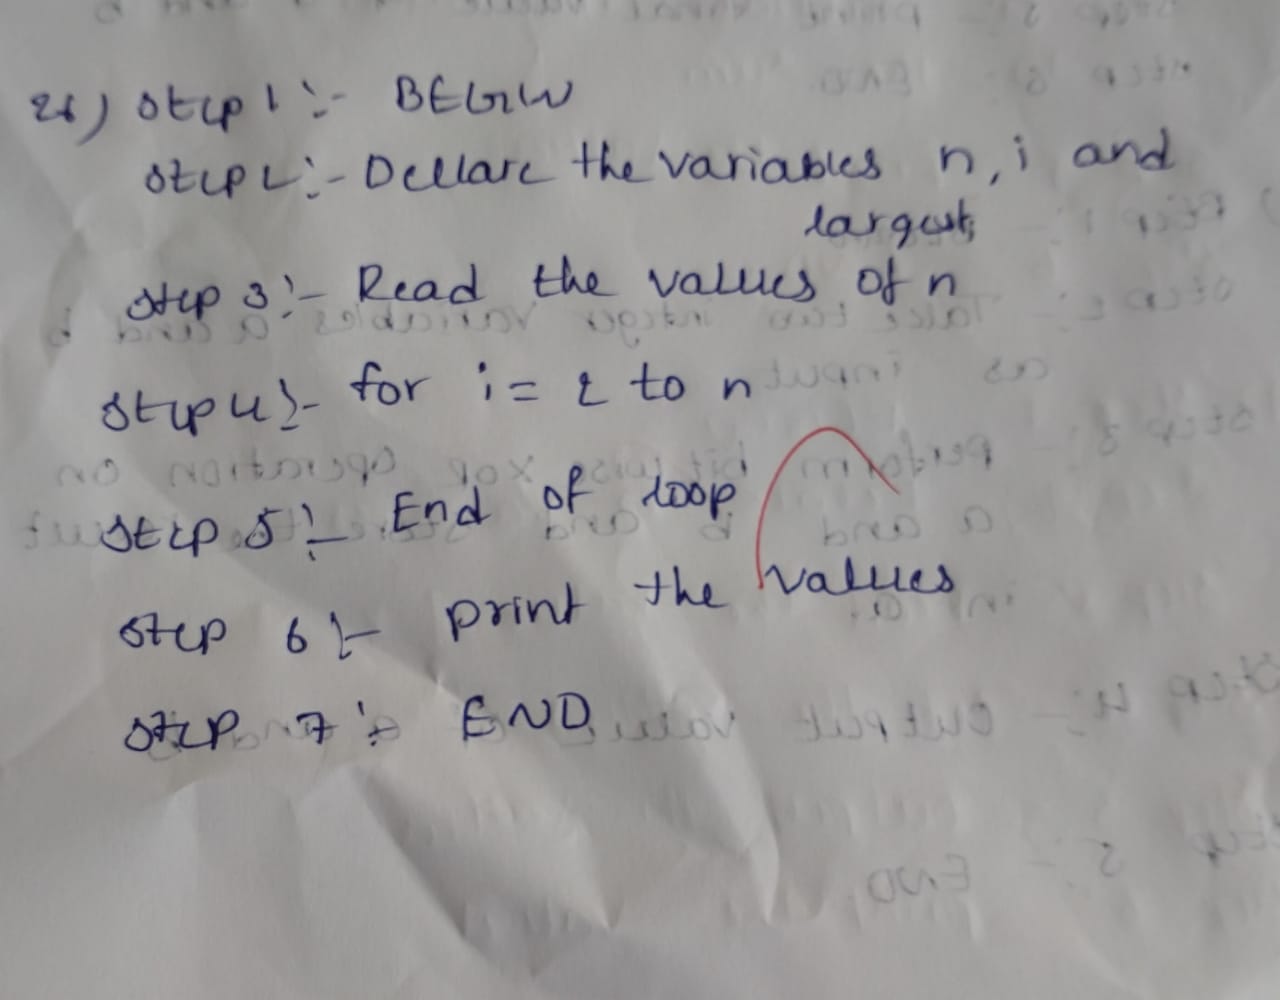 26) Step 1 :- BEGIN
Step 2 :- Declare the variables n, i and
largest;
Step 3 :- Read the values of n
Step 4 :- for i = 2 to n
Step 5 :- End of loop
Step 6 :- print the values
Step 7 :- END